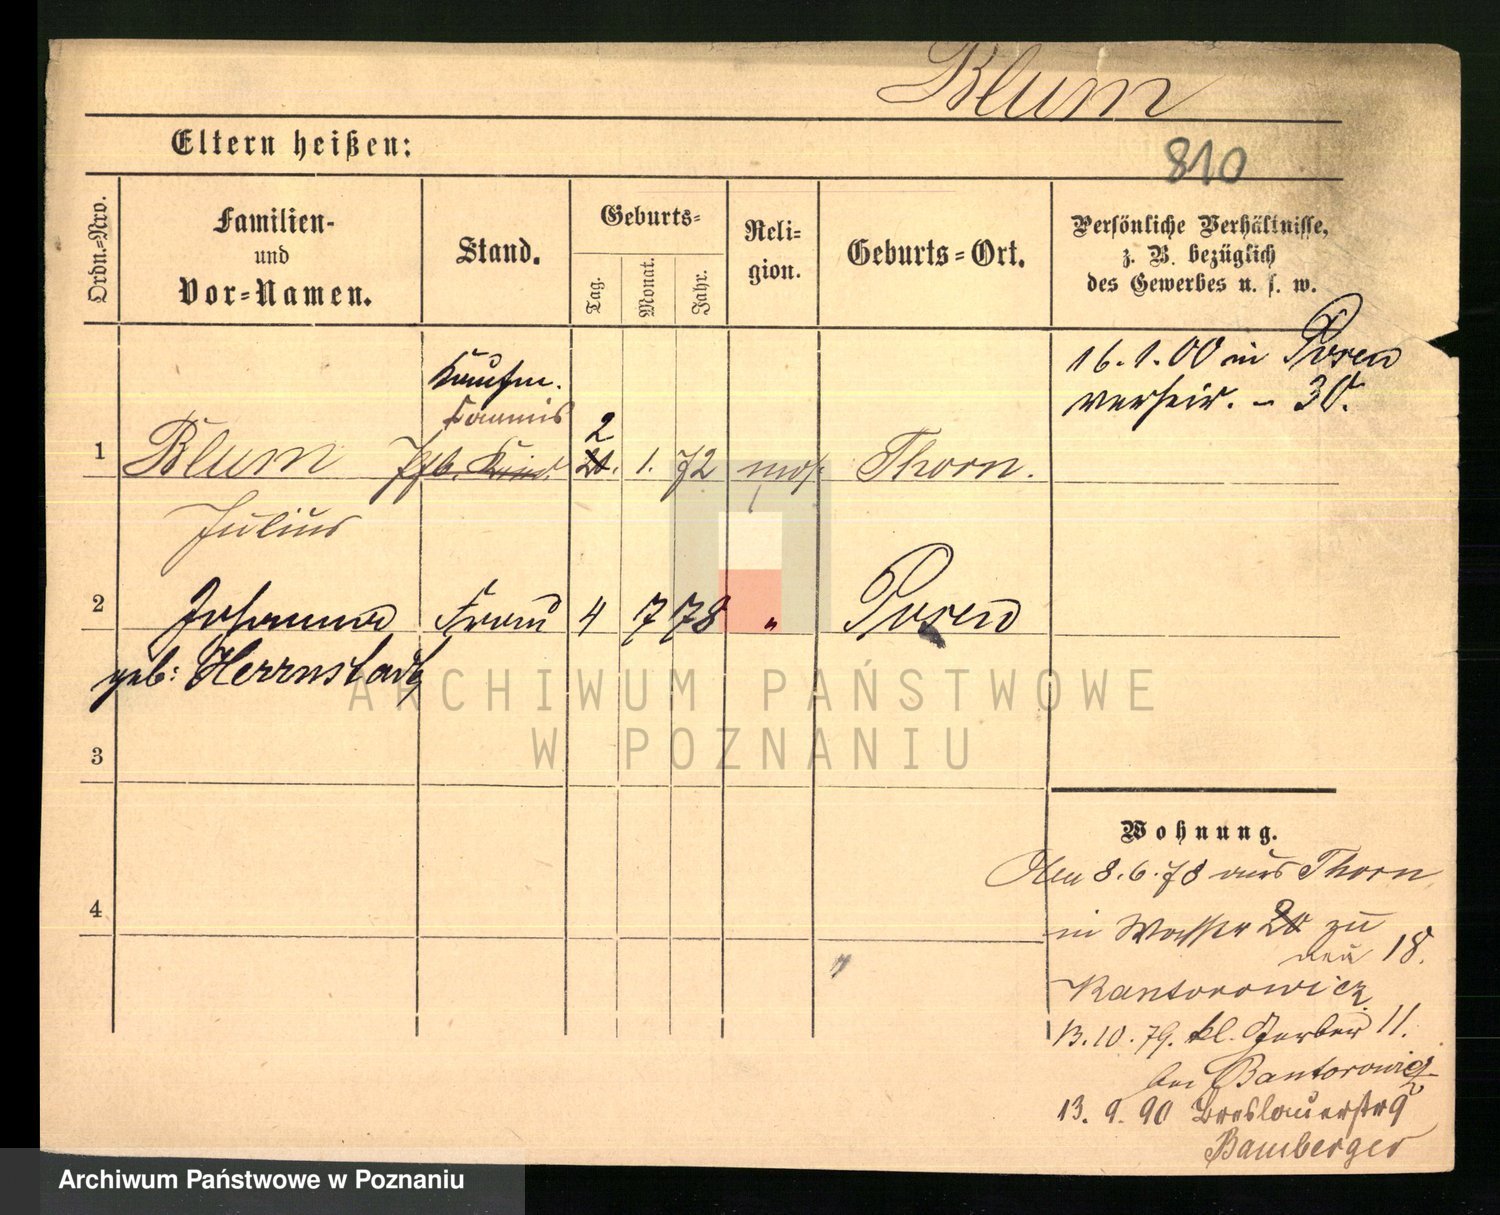 Blum
810
Eltern heißen:
Ordn.-Nro.
Familien-
und
Vor-Namen.
Stand.
Geburts-
Tag.
Monat.
Jahr.
Reli-
gion.
Geburts-Ort.
Persönliche Verhältnisse,
z. B. bezüglich
des Gewerbes u. s. w.
16.1.00 in Posen
verheir. - 30.
Kaufm.
1 Blum 2 1. 72 mos. Thorn.
Julius
2 Johanna Frau 4 7 78 " Posen
geb: Herrnstadt
3
Wohnung.
Den 8.6.78 aus Thorn
in Wasser 20 zu
den 18.
Kantorowicz
13.10.79. kl. Gerber 11.
bei Kantorowicz
13.9.90 Breslauerstr 9
Bamberger
4
ARCHIWUM PAŃSTWOWE
W POZNANIU
Archiwum Państwowe w Poznaniu